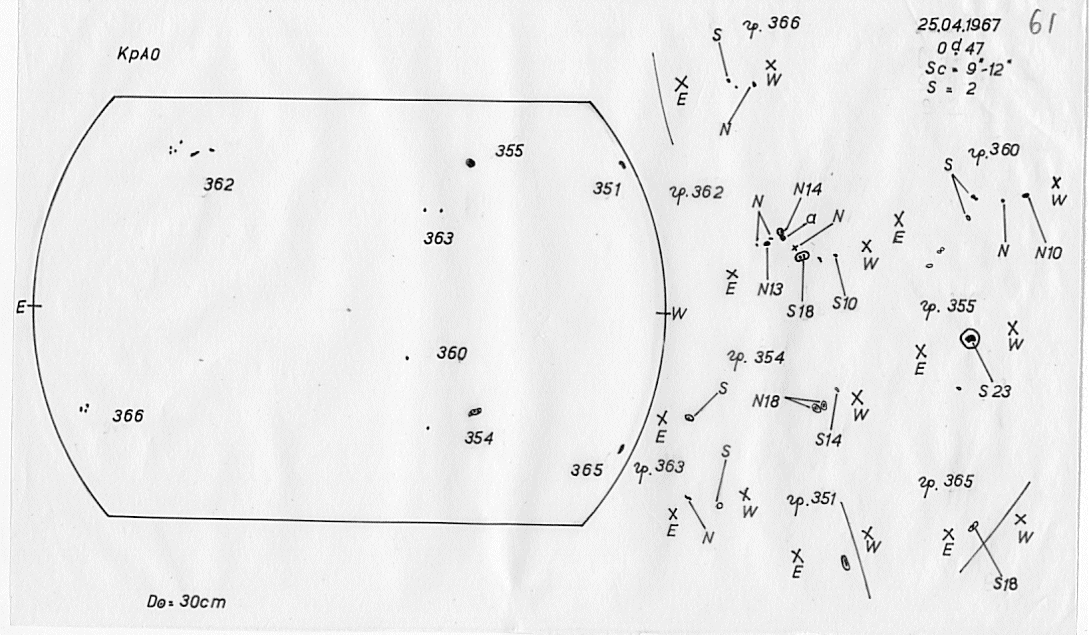 КрАО
25.04.1967
61
0ᵈ.47
Sc = 9"-12"
S = 2
362
355
351
363
E
W
360
366
354
365
D⊙= 30cm
гр. 366
S
E
W
N
гр. 362
N
N14
α
N
E
W
N13
S18
S10
гр. 360
S
E
W
N
N10
гр. 355
E
W
S 23
гр. 354
S
N18
E
W
S14
гр. 363
S
E
W
N
гр. 351
E
W
гр. 365
E
W
S18